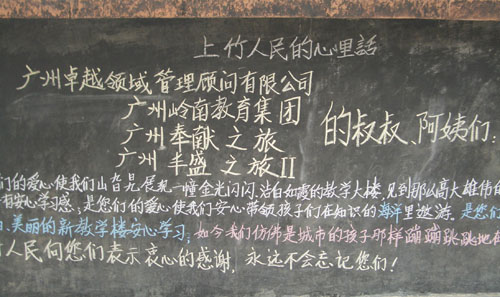 上竹人民的心里話
广州卓越领域管理顾问有限公司
广州岭南教育集团
广州奉献之旅
广州丰盛之旅II
的叔叔、阿姨们:
们的爱心使我们山旮旯展现一幢金光闪闪,洁白如霞的教学大楼,见到那么高大雄伟的
有安心学习感;是您们的爱心使我们安心带领孩子们在知识的海洋里遨游。是您们
美丽的新教学楼安心学习;如今我们仿佛是城市的孩子那样蹦蹦跳跳地在
竹人民向您们表示衷心的感谢,永远不会忘记您们!